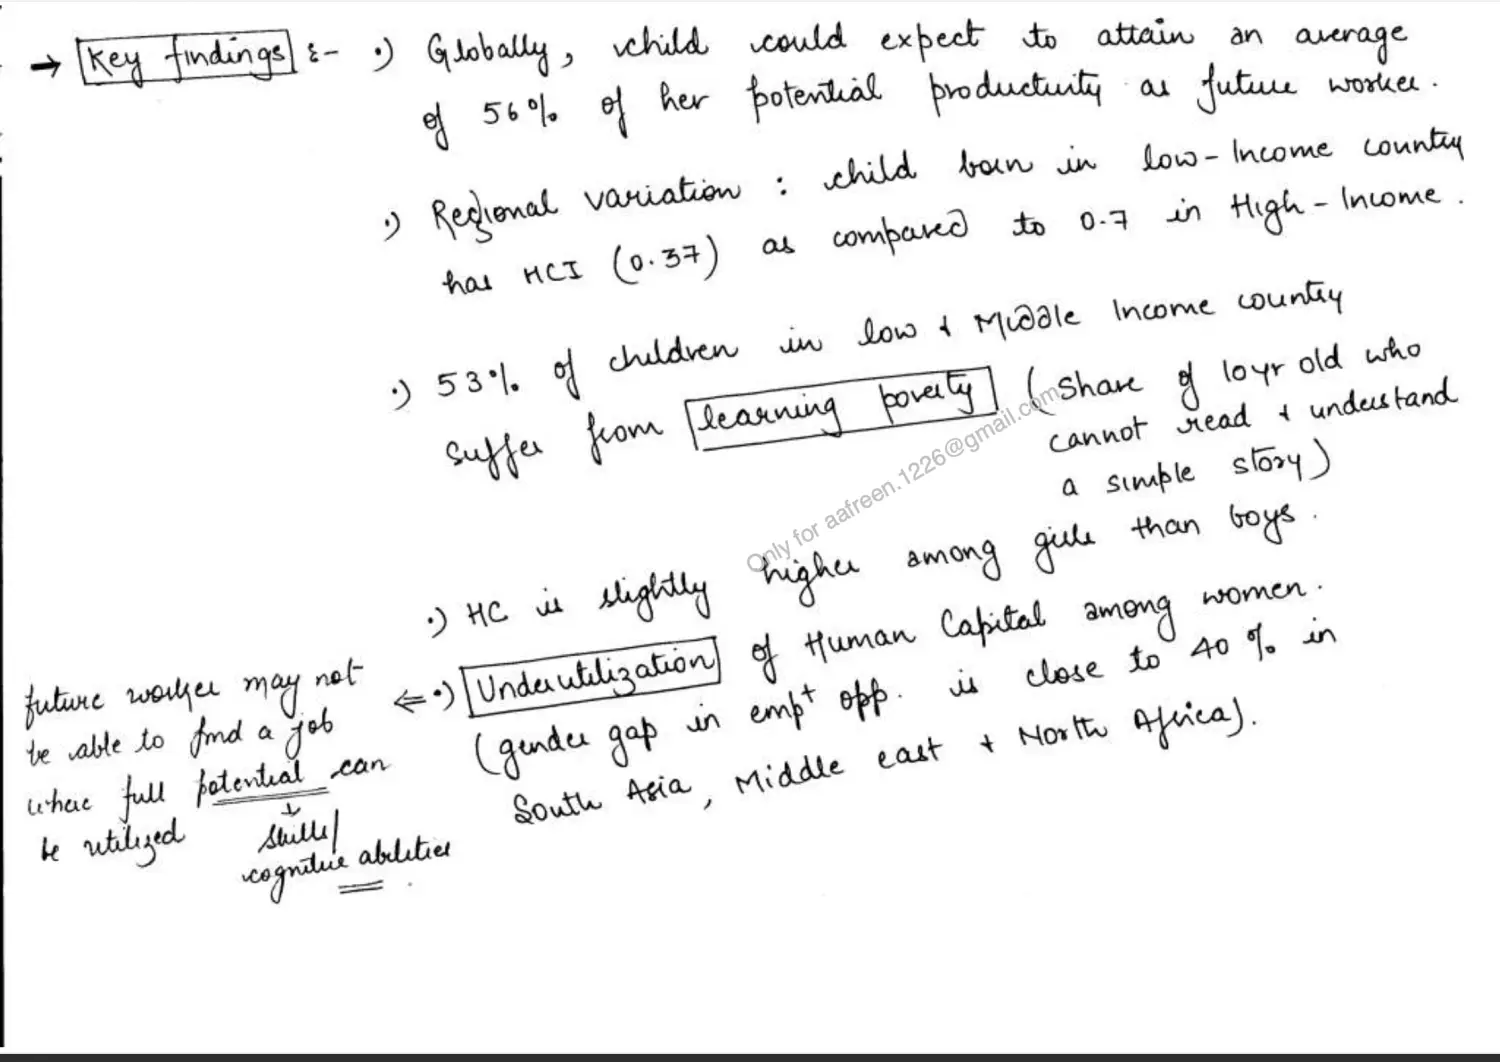 → Key findings :- •) Globally, child could expect to attain an average
of 56% of her potential productivity as future worker.
•) Regional variation : child born in low-Income country
has HCI (0.37) as compared to 0.7 in High-Income.
•) 53% of children in low & Middle Income country
suffer from learning poverty (Share of 10yr old who
cannot read & understand
a simple story)
•) HC is slightly higher among girls than boys.
⇐ •) Underutilization of Human Capital among women.
(gender gap in emp^t opp. is close to 40% in
South Asia, Middle east + North Africa).
future worker may not
be able to find a job
where full potential can
be utilized
↓
skills/
cognitive abilities
Only for aafreen.1226@gmail.com